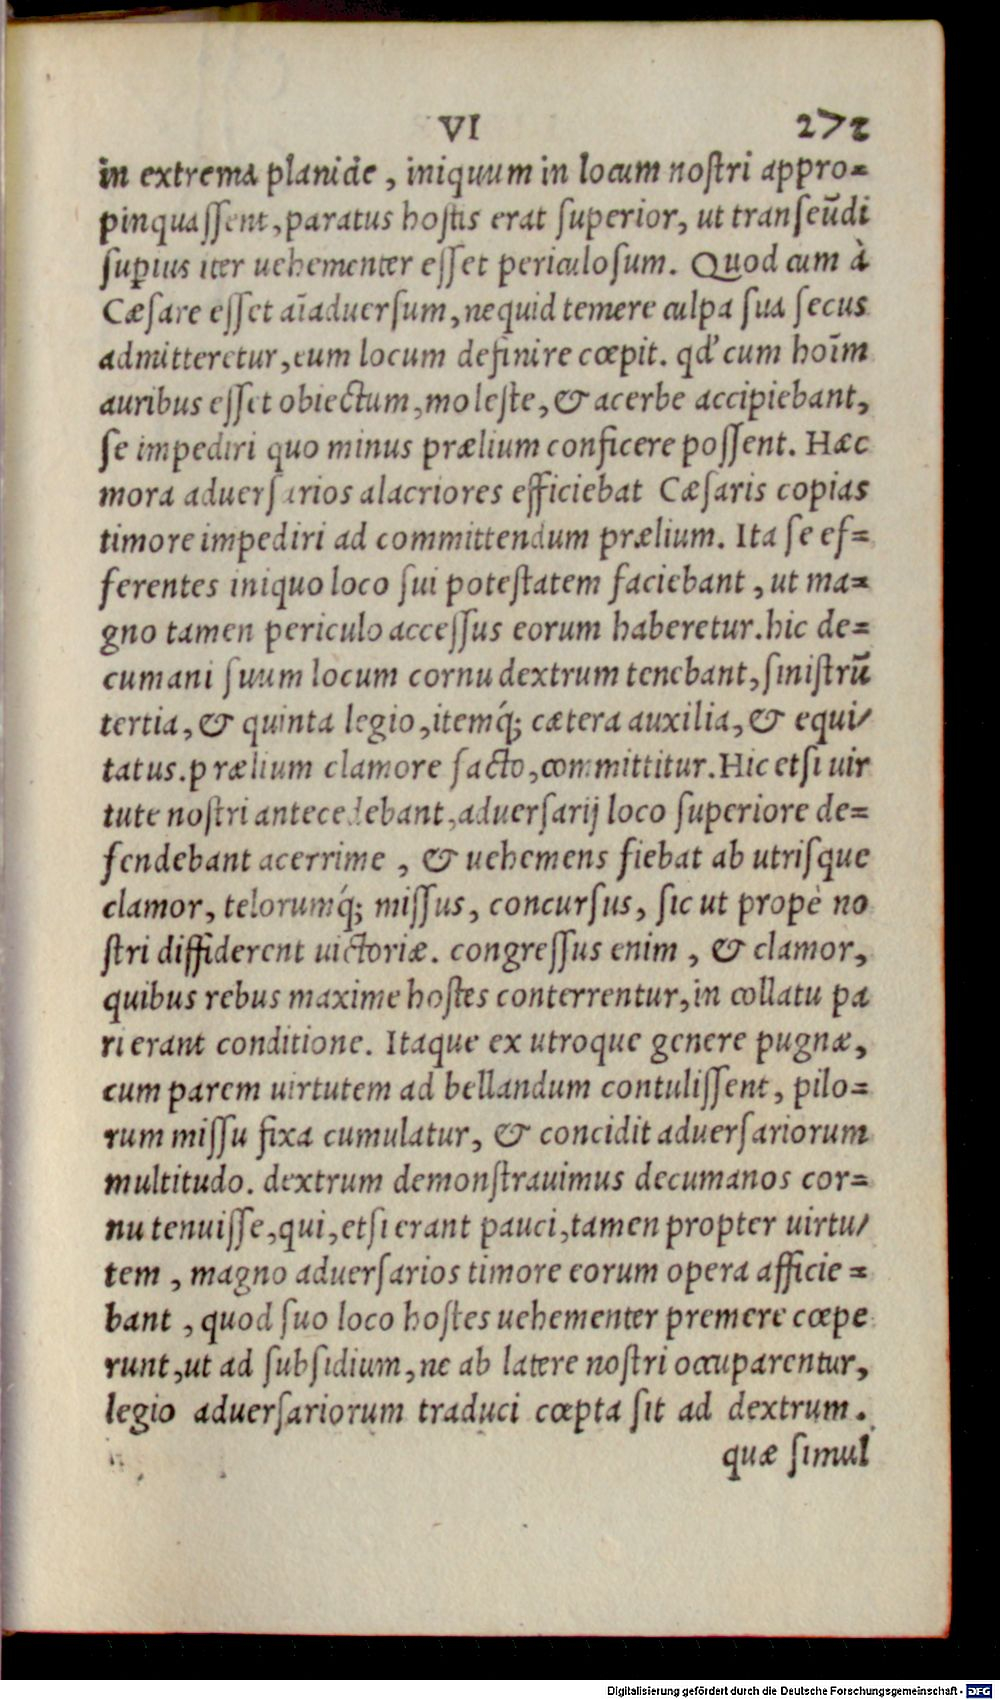 VI 272
in extrema planicie, iniquum in locum nostri appro=
pinquassent, paratus hostis erat superior, ut transeūdi
suꝑius iter uehementer esset periculosum. Quod cum à
Cæsare esset aīaduersum, ne quid temere culpa sua secus
admitteretur, eum locum definire cœpit. qd' cum hoīm
auribus esset obiectum, moleste, & acerbe accipiebant,
se impediri quo minus prælium conficere possent. Hæc
mora aduersarios alacriores efficiebat Cæsaris copias
timore impediri ad committendum prælium. Ita se ef=
ferentes iniquo loco sui potestatem faciebant, ut ma=
gno tamen periculo accessus eorum haberetur. hic de=
cumani suum locum cornu dextrum tenebant, sinistrū
tertia, & quinta legio, itemq́; cætera auxilia, & equi/
tatus. prælium clamore facto, committitur. Hic etsi uir
tute nostri antecedebant, aduersarij loco superiore de=
fendebant acerrime, & uehemens fiebat ab utrisque
clamor, telorumq́; missus, concursus, sic ut propè no
stri diffiderent uictoriæ. congressus enim, & clamor,
quibus rebus maxime hostes conterrentur, in collatu pa
ri erant conditione. Itaque ex utroque genere pugnæ,
cum parem uirtutem ad bellandum contulissent, pilo=
rum missu fixa cumulatur, & concidit aduersariorum
multitudo. dextrum demonstrauimus decumanos cor=
nu tenuisse, qui, etsi erant pauci, tamen propter uirtu/
tem, magno aduersarios timore eorum opera afficie=
bant, quod suo loco hostes uehementer premere cœpe
runt, ut ad subsidium, ne ab latere nostri occuparentur,
legio aduersariorum traduci cœpta sit ad dextrum.
quæ simul
Digitalisierung gefördert durch die Deutsche Forschungsgemeinschaft - DFG